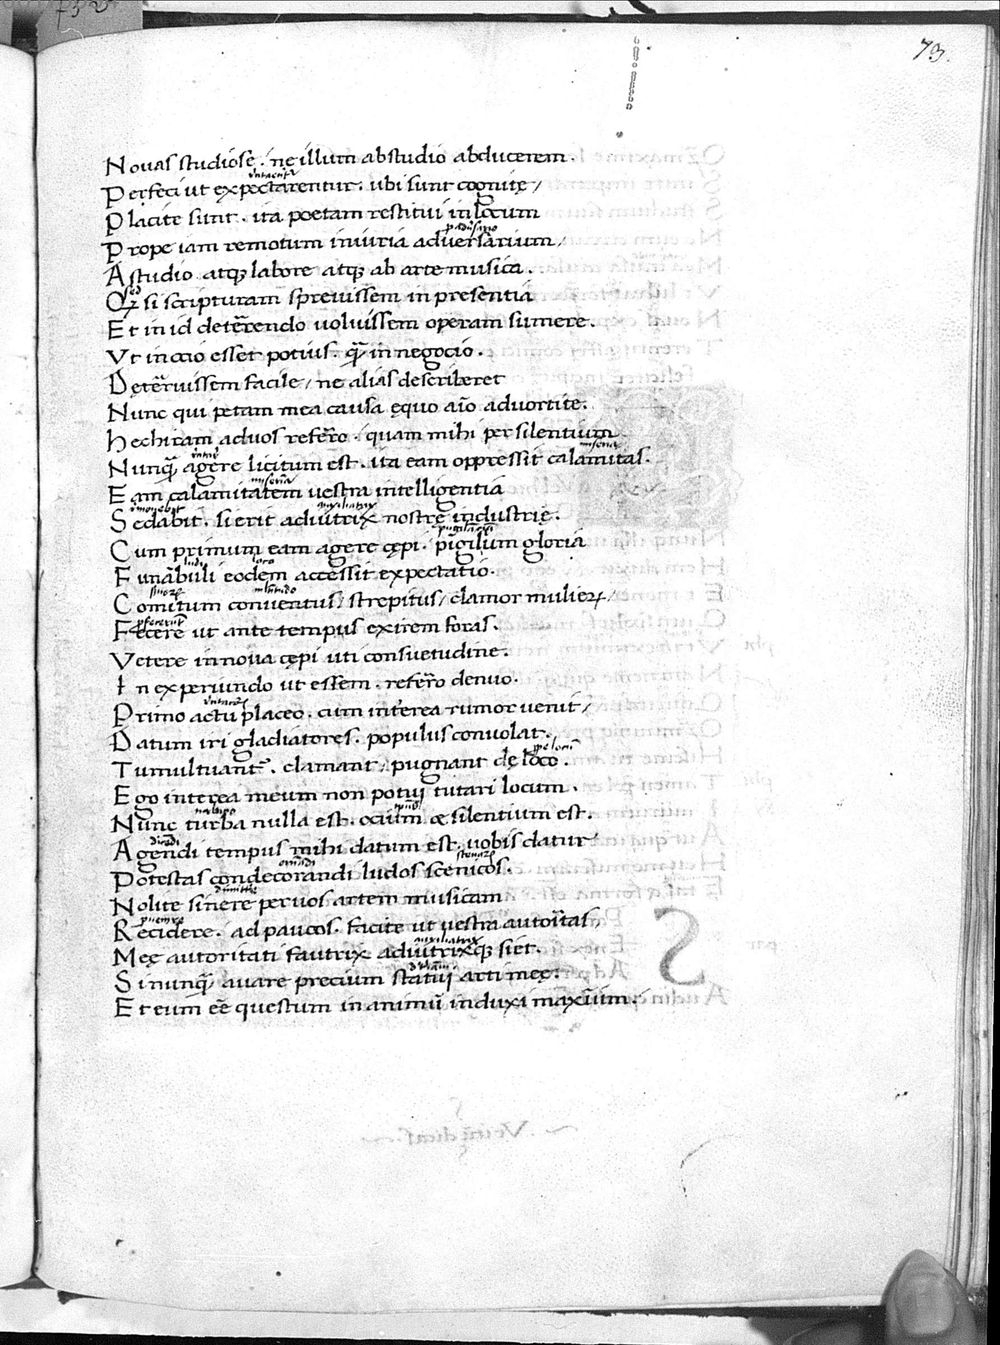 73.
Nouas studiose. ne illum abstudio abducerem.
Perfeci ut expectarentur. ubi sunt cognitę/
Placite sunt. ita poetam restitui in locum
Prope iam remotum iniuria aduersarium/
A studio atq; labore atq; ab arte musica.
Qđ si scripturam spreuissem in presentia
Et in id deterrendo uoluissem operam sumere.
Vt in ocio esset potius. q̄ in negocio.
Deterruissem facile/ ne alias describeret
Nunc qui petam mea causa ęquo aīo aduortite.
Hechiram aduos refero. quam mihi per silentium
Nunq̄ agere licitum est. ita eam oppressit calamitas.
miseriā
Eam calamitatem uestra intelligentia
auxiliatrix
Sedabit. si erit adiutrix nostrę industrię.
Cum primum eam agere cępi. pugilum gloria
ludi loco
Funābuli eodem accessit expectatio.
Comitum conuentus/ strepitus/ clamor mulieꝝ/
Fecere ut ante tempus exirem foras.
Vetere in noua cępi uti consuetudine.
In experiundo ut essem. refero denuo.
Primo actu placeo. cum interea rumor uenit/
Datum iri gladiatores. populus conuolat.
Tumultuant̄. clamant/ pugnant dę loco.
Ego interea meum non potui tutari locum.
Nunc turba nulla est. ocium & silentium est.
Agendi tempus mihi datum est. uobis datur
Potestas condecorandi ludos scenicos.
dimitte
Nolite sinere peruos artem musicam
Recidere. ad paucos. facite ut uestra autoritas/
auxiliatrix
Meę autoritati fautrix adiutrixq; siet.
Si nunq̄ auare precium statui arti meę.
Et eum eē questum in animū induxi maxumum.